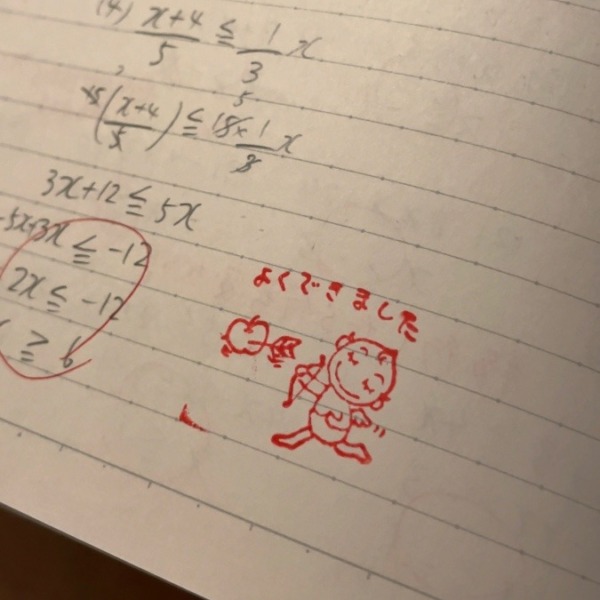 (4) x+4/5 ≦ 1/3 x
15(x+4/5) ≦ 15×1/3 x
3x+12 ≦ 5x
-5x+3x ≦ -12
2x ≦ -12
≧ 6
よくできました